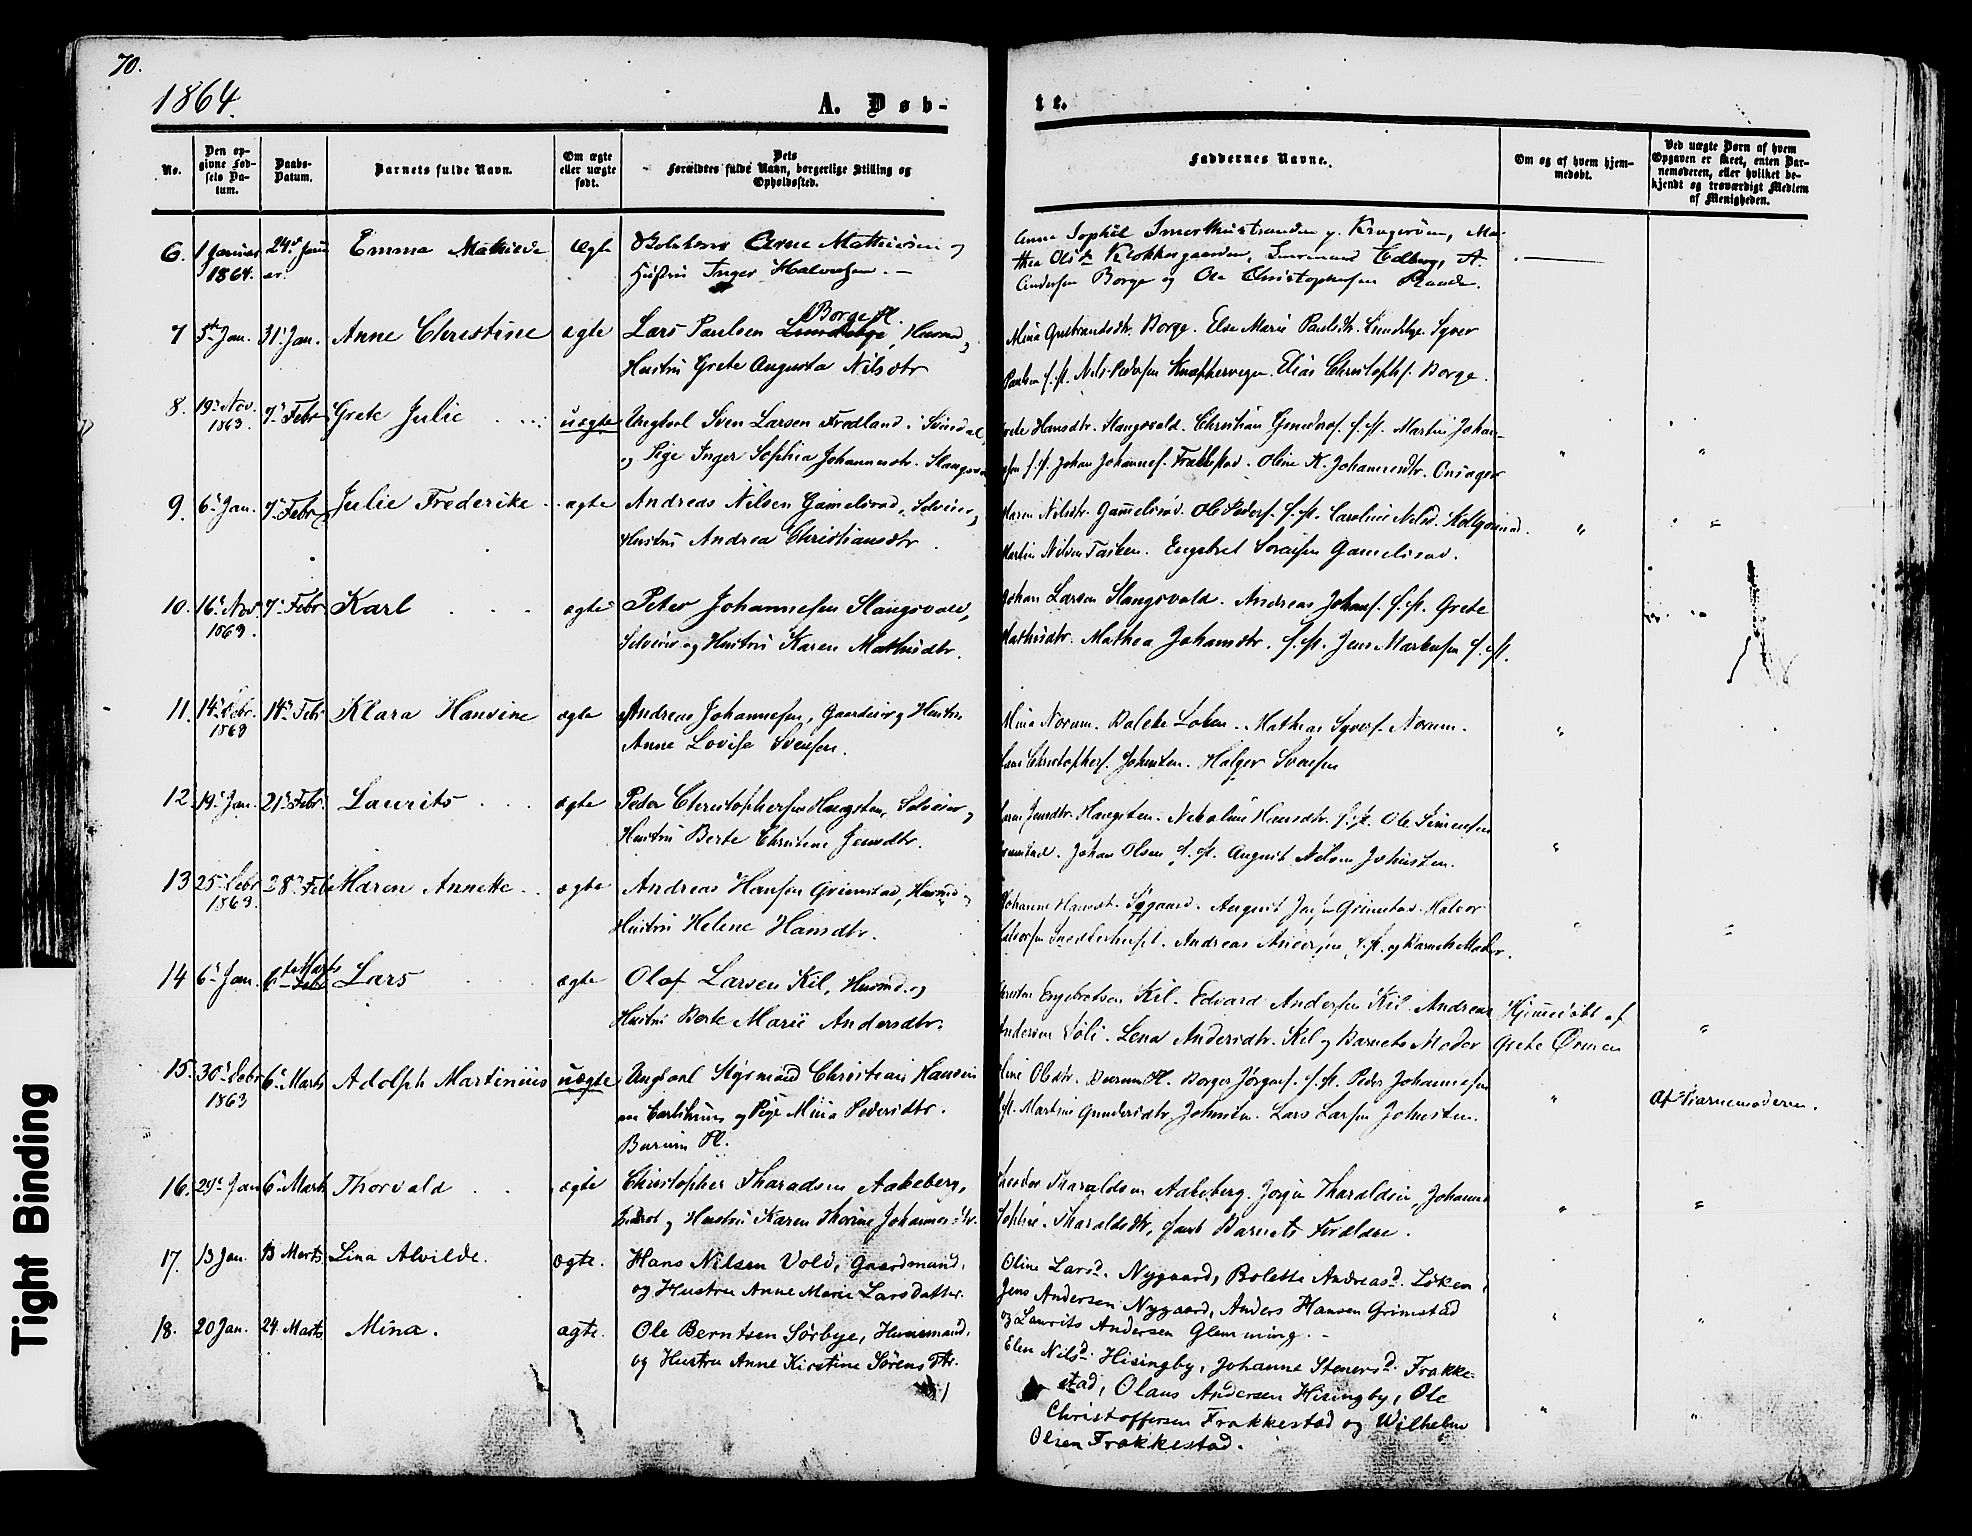 70.
1864.
A. Døb-
te.
No.
Den op-
givne Fød-
sels Da-
tum.
Daabs-
Datum.
Barnets fulde Navn.
Om ægte
eller uægte
født.
Dets
Forældres fulde Navn, borgerlige Stilling og
Opholdssted.
Faddernes Navne.
Om og af hvem hjem-
medøbt.
Ved uægte Børn af hvem
Opgaven er skeet, enten Bar-
nemoderen, eller hvilket be-
kjendt og troværdigt Medlem
af Menigheden.
6. 1 Januar 24de Janu Emma Mathilde Ægte Arne Mathiesen og
1864. ar. Hustru Inger Halvorsen. —
Anna Sophie
Klokkergaarden,
Andersen Borge og Ole Christophersen Raade.
7 5te Jan. 31' Jan. Anne Christine ægte Lars Paulsen Borge Pl. Husmd. og
Hustru Grete Augusta Nilsdtr
Borge. Else Marie Paulsdtr. Lundebye. Syver
Paulsen s.st. Nils Pedersen Elias Christophs. Borge.
8. 19' Nov. 7' Febr Grete Julie uægte Ungkarl Sven Larsen Fredland i Svindal,
1863. og Pige Inger Sophia Johannesdtr. Slangsvold
Grete Hansdtr. Slangsvold. Christian s.st. Martin Johan-
s.st. Johan Johannes. Frakkestad. Oline K. Johannesdtr. Onsager
9. 6' Jan. 7' Febr Julie Frederike ægte Andreas Nilsen Gamelsrød, Selveier,
Hustru Andrea Christiansdtr.
Maren Nilsdtr. Gamelsrød. Ole Peders. s.st. Caroline Nilsd.
Martin Nilsen Tasken. Engebret Gamelsrød.
10. 16' Nov. 7' Febr Karl ægte Peter Johannesen Slangsvold,
1863. Selveier og Hustru Karen Mathisdtr.
Johan Larsen Slangsvold. Andreas Johans. s.st. Grete
Mathisdtr. Mathea Johansdtr. s.st. Jens Markusen s.st.
11. 14' Debr. 14' Febr Klara Hansine ægte Andreas Johannesen, Gaardeier og Hustru
1863 Anne Lovise Svensen.
Mina Norum. Bolette Løken. Mathias Syvers. Norum.
Hans Christophers. Johnsten. Holger Svensen
12. 19' Jan. 21' Febr. Laurits ægte Peder Christophersen Haugsten, Selveier,
Hustru Berte Christine Jensdtr.
Maren Jensdtr. Haugsten. Nikoline Hansdtr. s.st. Ole Simensen
Grimstad. Johan Olsen s.st. August Nilsen Johnsten.
13 25' Debr 28' Feb Maren Annette ægte Andreas Hansen Grimstad, Husmd. og
1863. Hustru Helene Hansdtr.
Johanne Hansdt. Nygaard. August Grimstad. Halvor
Halvorsen Andreas s.st. og Barnets Moder.
14 6' Jan. 6te Marts Lars ægte Olaf Larsen Kil, Husmd. og
Hustru Berte Marie Andersdtr.
Engebretsen Kil. Edvard Andersen Kil. Andreas
Andersen Lena Andersdtr. Kil og Barnets Moder
Hjemmedøbt af
Grete Ørmen
15. 30' Debr 6' Marts Adolph Martinius uægte Ungkarl Styrmand Christian Hansen
1863 Carlshuus og Pige Mina Pedersdtr.
Burum Pl.
Oline Olsdtr. Burum Pl. Borger Jørgens. s.st. Peder Johannesen
s.st. Martine Gundersdtr. Johnsten. Lars Larsen Johnsten.
Af Barnemoderen.
16. 29' Jan 6' Marts Thorvald ægte Christopher Tharaldsen Aakeberg,
og Hustru Karen Thorine Johannesdtr.
Tharaldsen Aakeberg. Jørgen Tharaldsen, Johanne
Sophie Tharaldsdtr, samt Barnets Forældre.
17. 13 Jan. 13 Marts Lina Alvilde. ægte. Hans Nilsen Vold, Gaardmand,
og Hustru Anne Marie Larsdatter.
Oline Larsd. Nygaard, Bolette Andreasd. Løken,
Jens Andersen Nygaard, Anders Hansen Grimstad
og Laurits Andersen Glemming. —
18. 20 Jan. 24 Marts Mina. ægte. Ole Berntsen Sørbye, Huusmand,
og Hustru Anne Kirstine Sørensdtr.
Elen Nilsd. Hisingby, Johanne Stenersd. Frakke-
stad, Olaus Andersen Hisingby, Ole
Christoffersen Frakkestad og Wilhelm
Olsen Frakkestad.
Tight Binding